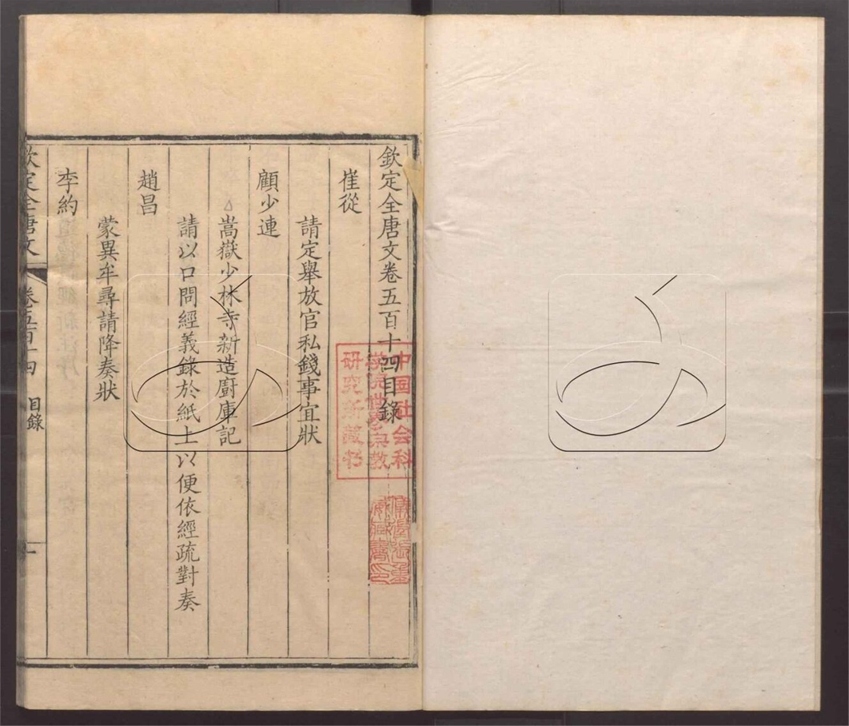 欽定全唐文卷五百十四目錄
崔從
請定舉放官私錢事宜狀
顧少連
嵩嶽少林寺新造廚庫記
請以口問經義錄於紙上以便依經疏對奏
趙昌
蒙異牟尋請降奏狀
李約
欽定全唐文 卷五百十四 目錄 一
中国社会科
学院世界宗教
研究所藏书